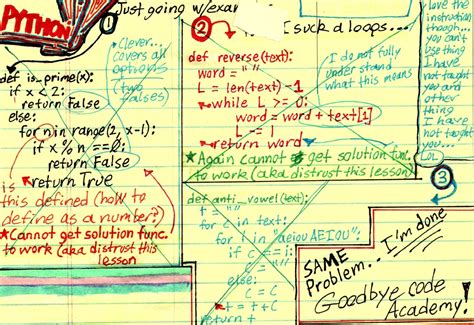 PYTHON
1
Just going w/exam
2
I suck a loops...
love the
instruction
though...
you can't
use thing
I have
not taught
you and
other
thing I
have not
taught
you..
LOL
3
Clever...
covers all
options
(two
falses)
def is_prime(x):
if x < 2:
return False
else:
for n in range(2, x-1):
if x % n == 0:
return False
return True
is
this defined (how to
define as a number?)
★Cannot get solution func.
to work (aka distrust this
lesson)
def reverse(text):
word = ""
L = len(text) -1
while L >= 0:
word = word + text[1]
L -= 1
return word
I do not fully
under stand
what this means
★Again cannot get solution func.
to work (aka distrust this lesson)
def anti_vowel(text):
t = ""
for c in text:
for i in "aeiouAEIOU":
if c == i:
c = ""
else:
c = c
t = t + c
return t
SAME
Problem...
I'm done
Goodbye code
Academy!